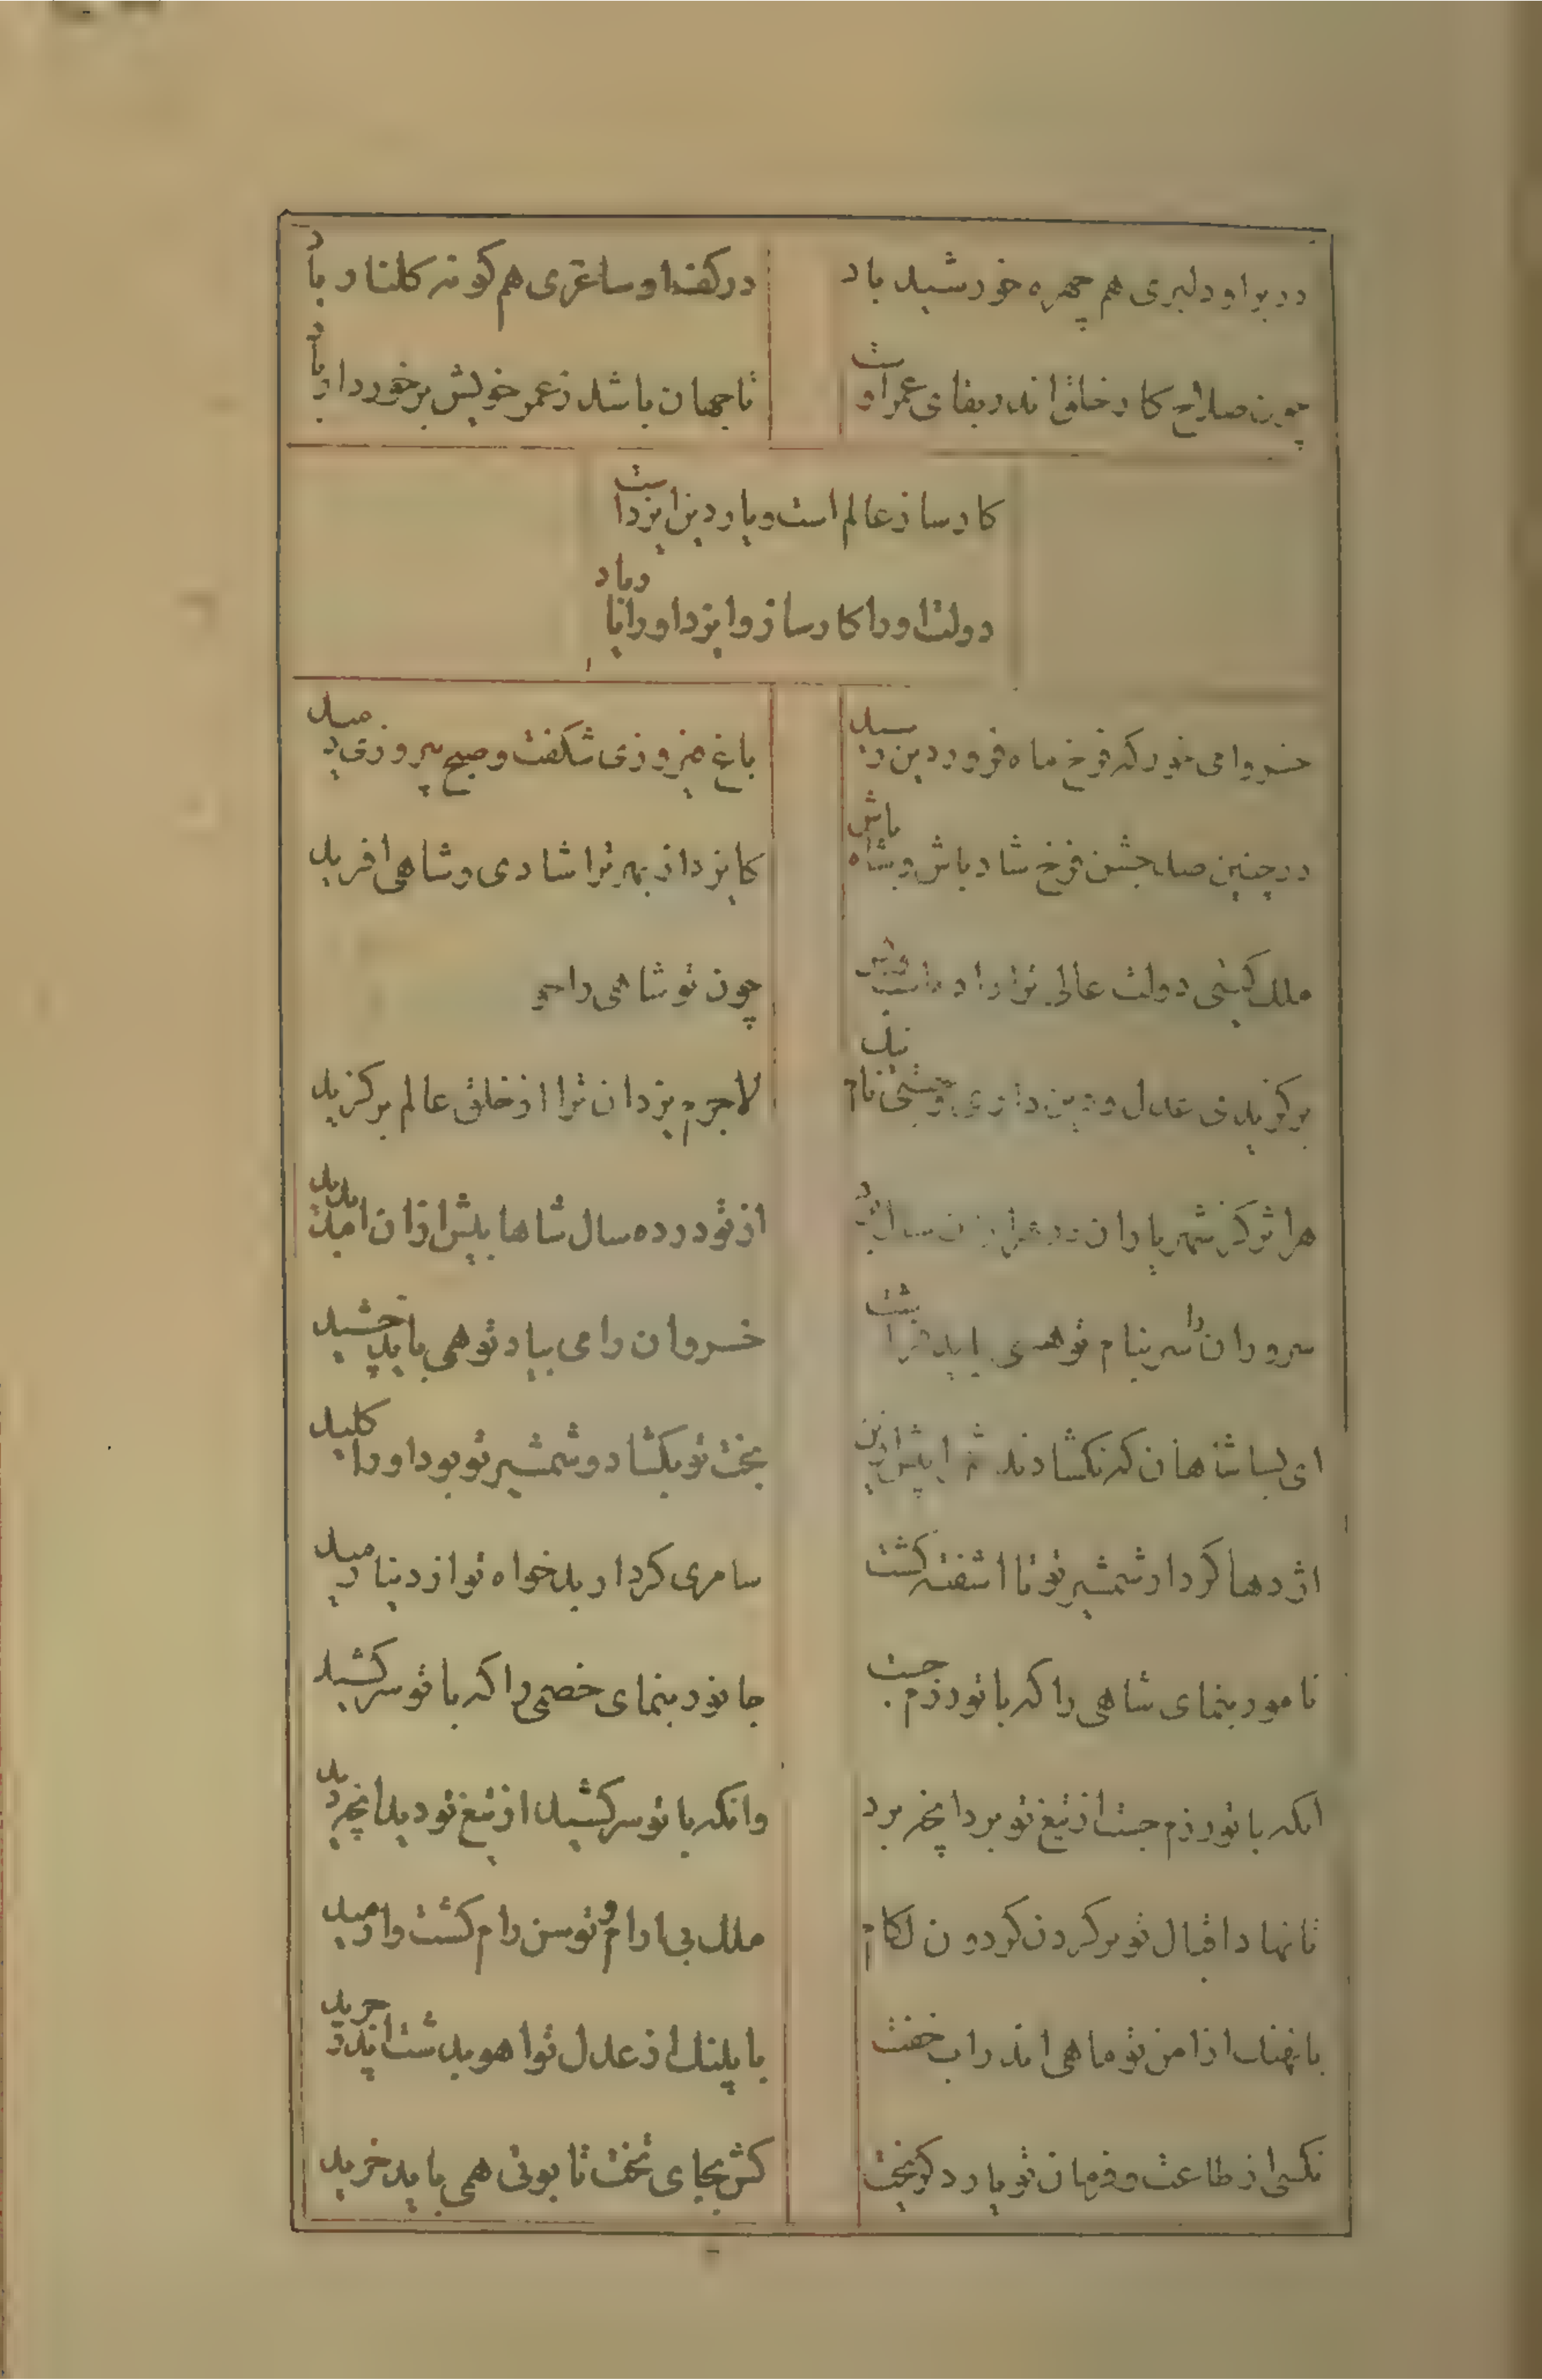 در بر او دلبری هم چهره خورشید باد در کف او ساغری هم کونه کلنار باد
چون صلاح کار خلق اندر بقای عمر اوست تا جهان باشد ز عمر خویش برخوردار باد
کارساز عالم است و یار دین ایزداست
دولت او را کارساز و ایزد او را یار باد
خسروا می خور که فرخ ماه فروردین رسید باغ فیروزی شکفت و صبح پیروزی دمید
در چنین صد جشن فرخ شاد باش و شاه باش کایزد از بهر ترا شادی و شاهی افرید
ملک کیتی دولت عالی ترا داد چون تو شاهی را
برکزیدی عدل و دین داری و نام نیک لاجرم یزدان ترا از خلق عالم برکزید
هر اثر کز شهریاران در سال از تو در ده سال شاها بیش از ان امد پدید
سروران را سر بنام تو همی باید خسروان را می بیاد تو همی باید چشید
ای بسا شاهان که نکشادند پیش ازین بخت تو بکشاد و شمشیر تو بود او را کلید
اژدها کردار شمشیر تو تا اشفته کشت سامری کردار بدخواه تو از دنیا رمید
نامور بنمای شاهی را که با تو رزم جست جانور بنمای خصمی را که با تو سر کشید
انکه با تو رزم جست از تیغ تو برد انچه برد وانکه با تو سر کشید از تیغ تو دید انچه دید
تا نهاد اقبال تو بر کردن کردون لکام ملک بی ارام و توسن رام کشت و ارمید
با نهنک از امن تو ماهی اندر اب خفت با پلنک از عدل تو اهو بدشت اندر چرید
نکسی از طاعت و فرمان تو یارد کریخت کش بجای تخت تابوتی همی باید خرید